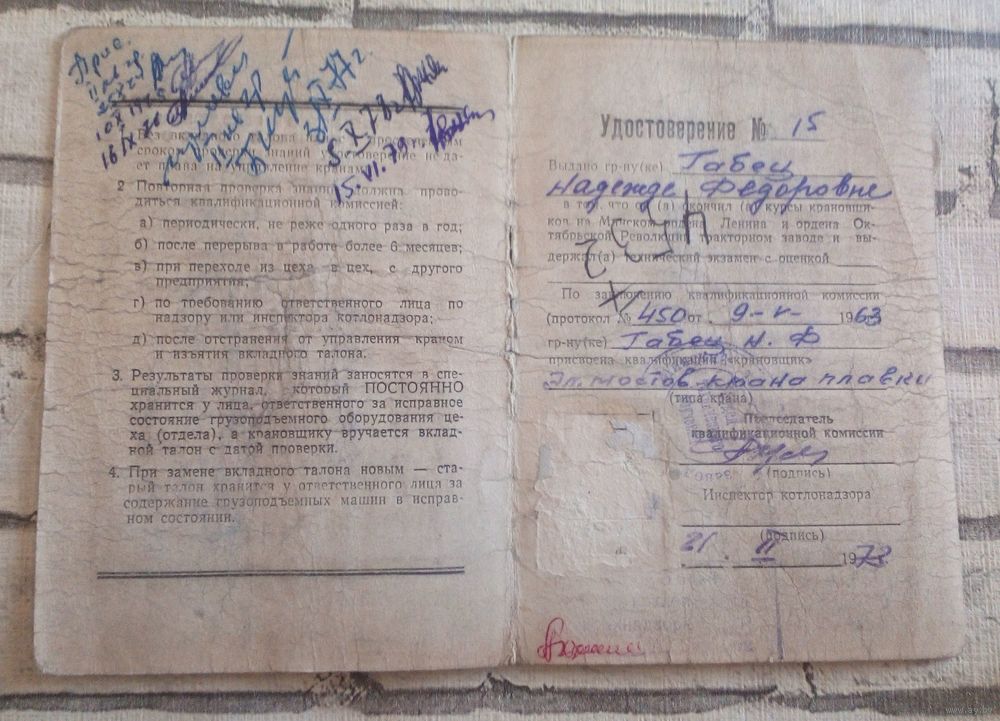 10 IX
16 IX 76
IX 77 г.
5 X 78 г.
15. VI. 79
1. Без вкладного талона
сроком проверки знаний удостоверение не да-
ет права на управление краном.
2 Повторная проверка знаний должна прово-
диться квалификационной комиссией:
а) периодически, не реже одного раза в год;
б) после перерыва в работе более 6 месяцев;
в) при переходе из цеха в цех, с другого
предприятия;
г) по требованию ответственного лица по
надзору или инспектора котлонадзора;
д) после отстранения от управления краном
и изъятия вкладного талона.
3. Результаты проверки знаний заносятся в спе-
циальный журнал, который ПОСТОЯННО
хранится у лица, ответственного за исправное
состояние грузоподъемного оборудования це-
ха (отдела), а крановщику вручается вклад-
ной талон с датой проверки.
4. При замене вкладного талона новым — ста-
рый талон хранится у ответственного лица за
содержание грузоподъемных машин в исправ-
ном состоянии.
Удостоверение № 15
Выдано гр-ну(ке) Габец
Надежде Федоровне
в том, что он (а) окончил (а) курсы крановщи-
ков на Минском ордена Ленина и ордена Ок-
тябрьской Революции тракторном заводе и вы-
держал(а) технический экзамен с оценкой
По заключению квалификационной комиссии
(протокол № 450 от 9-V- 1963
гр-ну(ке) Габец Н. Ф
присвоена квалификация «крановщик»
Эл. мостов. крана плавки
(типа крана)
Председатель
квалификационной комиссии
(подпись)
Инспектор котлонадзора
(подпись)
21. II 1973
www.ay.by